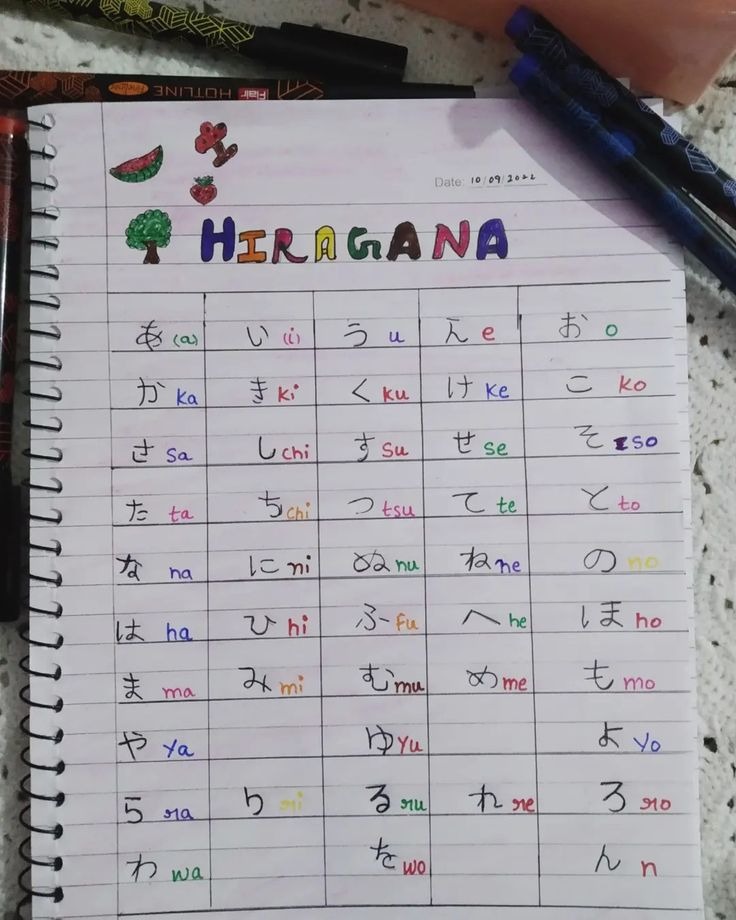 Flair HOTLINE fineliner
Date: 10/09/2022
HIRAGANA
あ (a) い (i) う u え e お o
か ka き ki く ku け ke こ ko
さ sa し chi す su せ se そ so
た ta ち chi つ tsu て te と to
な na に ni ぬ nu ね ne の no
は ha ひ hi ふ fu へ he ほ ho
ま ma み mi む mu め me も mo
や ya ゆ yu よ yo
ら ra り ri る ru れ re ろ ro
わ wa を wo ん n